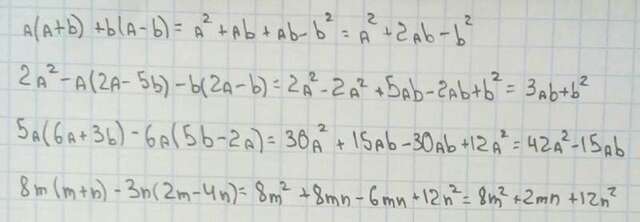 A(A+b)+b(A-b)=A²+Ab+Ab-b²=A²+2Ab-b²
2A²-A(2A-5b)-b(2A-b)=2A²-2A²+5Ab-2Ab+b²=3Ab+b²
5A(6A+3b)-6A(5b-2A)=30A²+15Ab-30Ab+12A²=42A²-15Ab
8m(m+n)-3n(2m-4n)=8m²+8mn-6mn+12n²=8m²+2mn+12n²